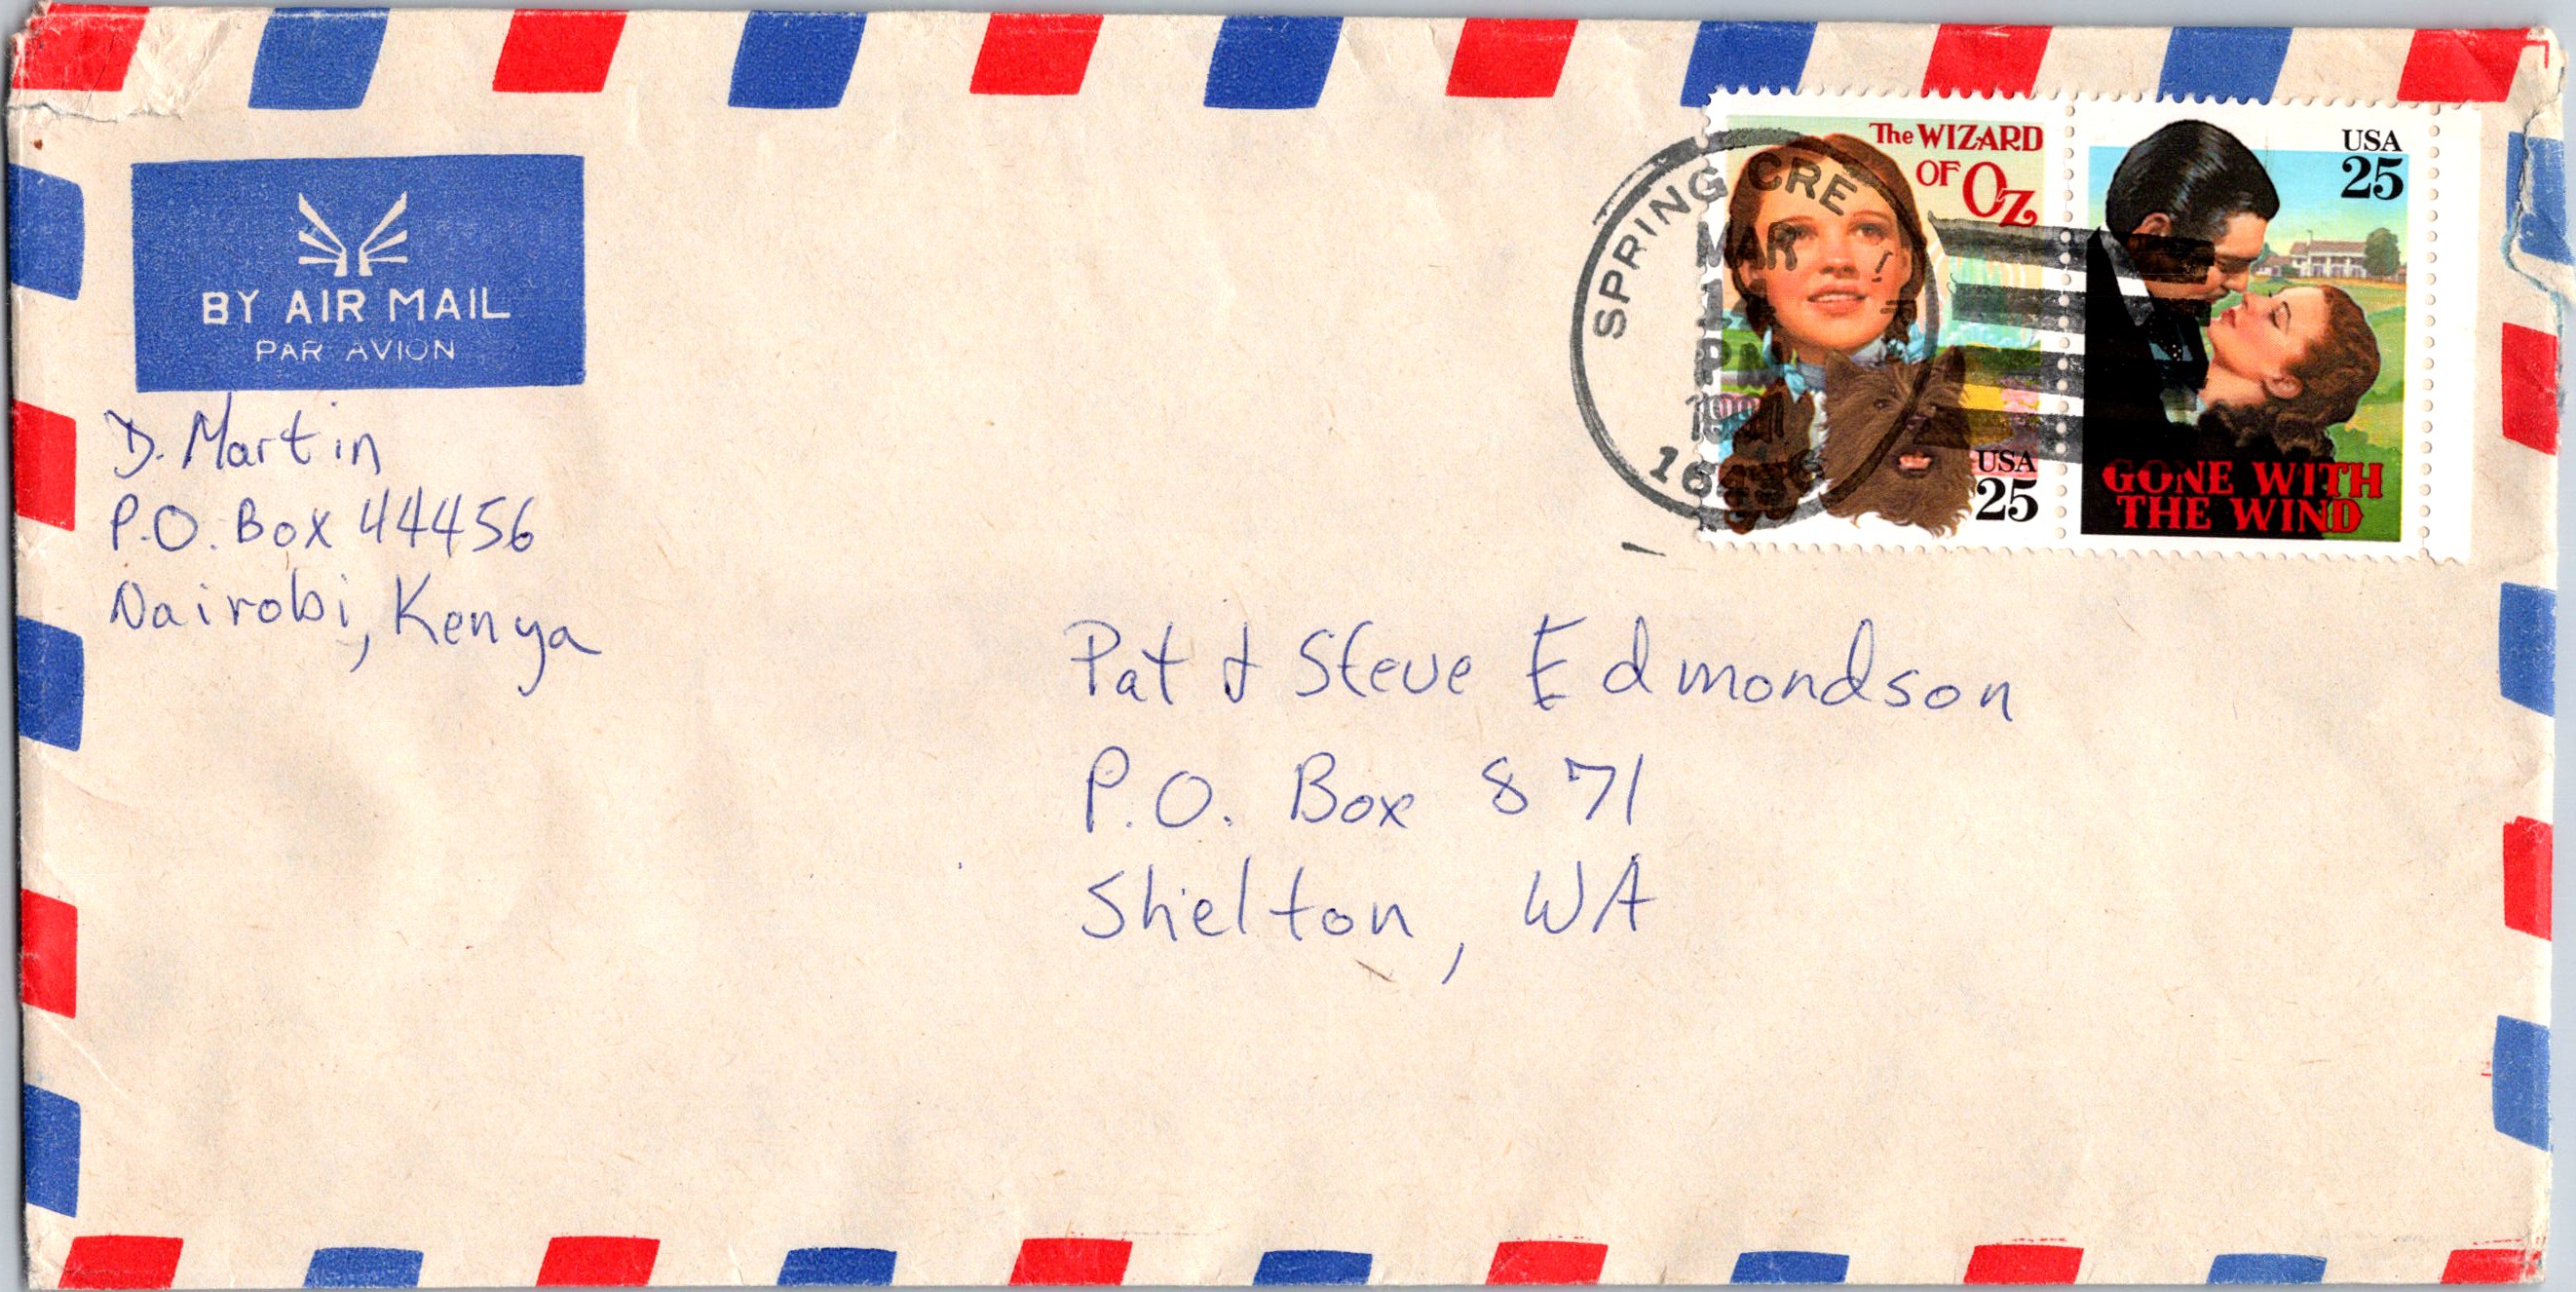 BY AIR MAIL
PAR AVION
D. Martin
P.O. Box 44456
Nairobi, Kenya
SPRING CRE
MAR
PM
The WIZARD
OF OZ
USA
25
USA
25
GONE WITH
THE WIND
Pat & Steve Edmondson
P.O. Box 871
Shelton, WA